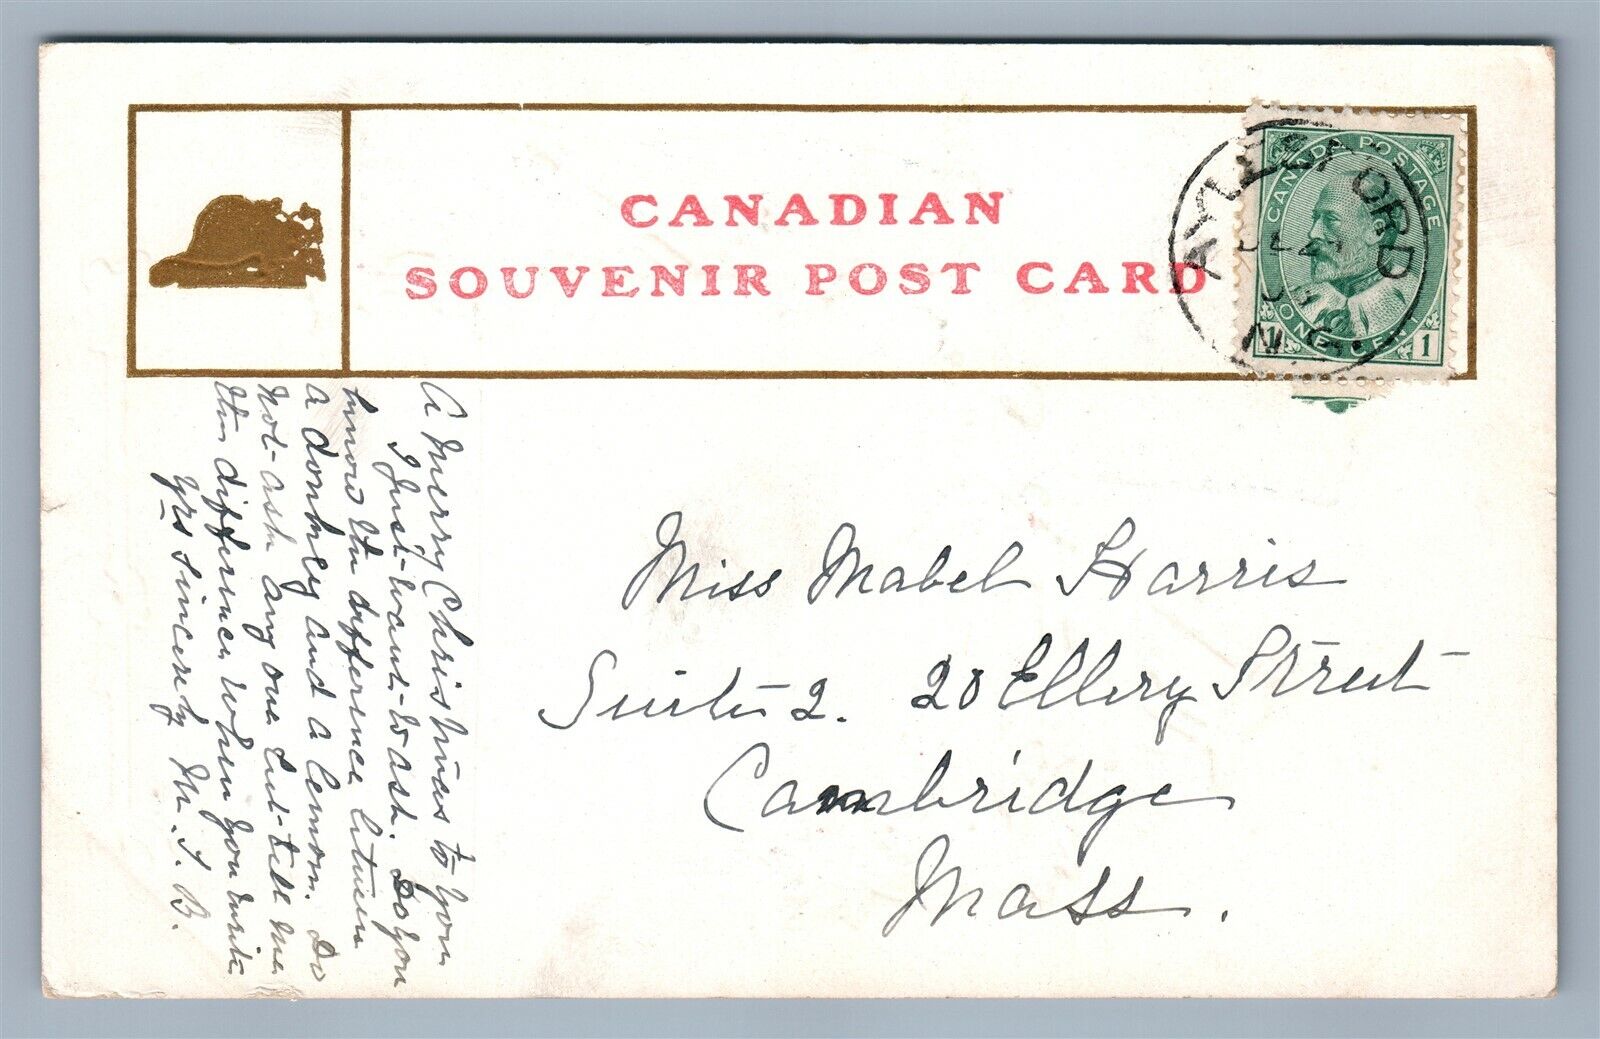 CANADIAN
SOUVENIR POST CARD
CANADA POSTAGE
ONE CENT
1 1
AYLESFORD
DE
N.S.
A Merry Christmas to you
I Just want to ask. Do you
know the difference between
a donkey and a lemon. Do
not ask any one but tell me
the difference when you write
yrs sincerely M. B.
Miss Mabel Harris
Suite 2. 20 Ellery Street
Cambridge
Mass.